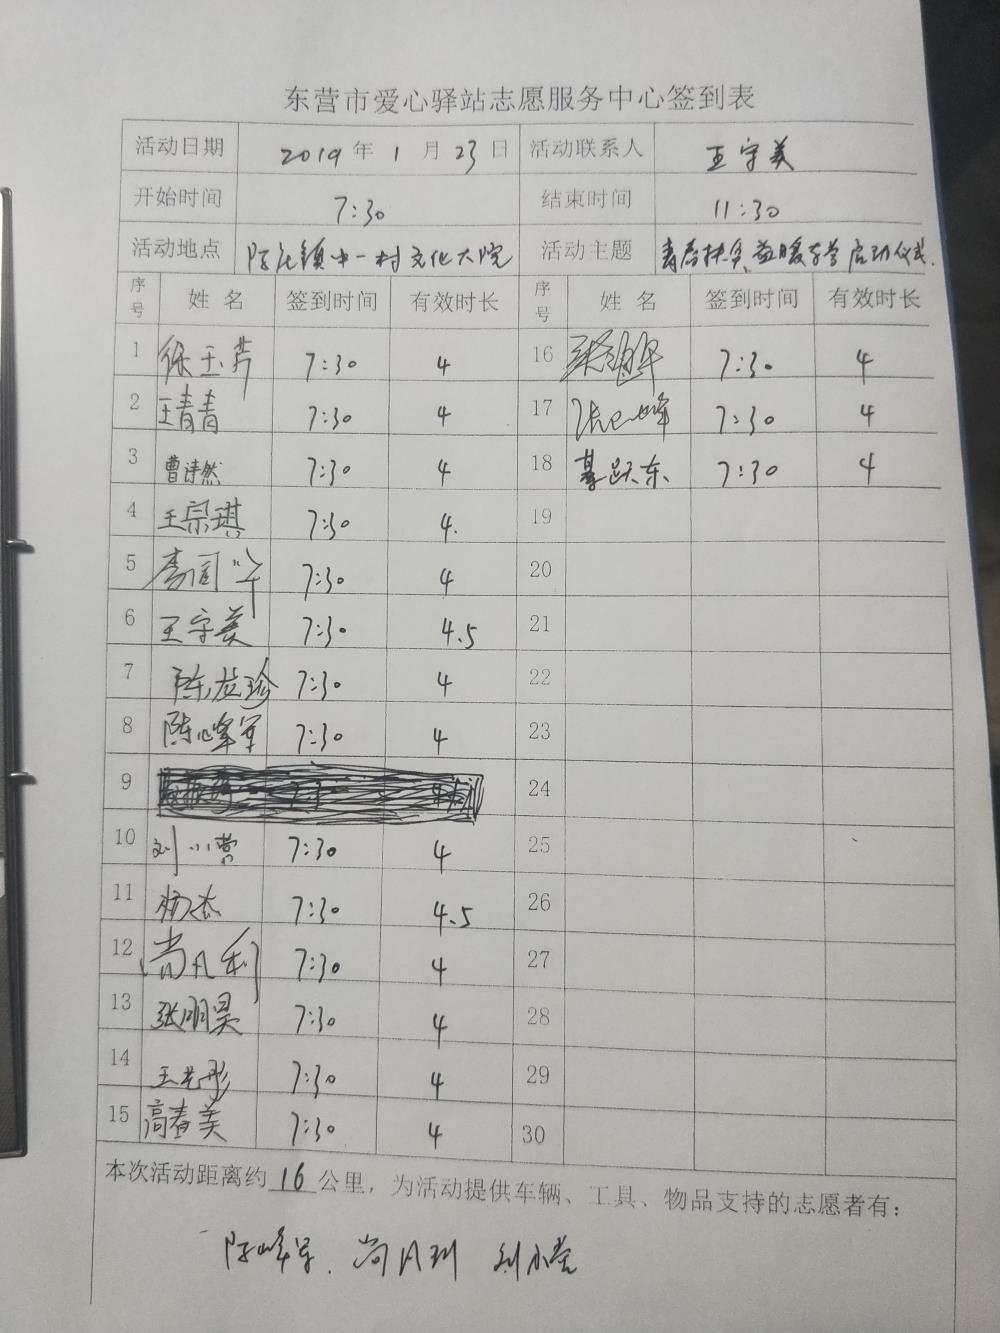 东营市爱心驿站志愿服务中心签到表
活动日期 2019 年 1 月 23 日 活动联系人 王守美
开始时间 7:30 结束时间 11:30
活动地点 陈庄镇中一村文化大院 活动主题 青春扶贫 益暖万营 启动仪式.
序号 姓名 签到时间 有效时长 序号 姓名 签到时间 有效时长
1 徐玉芹 7:30 4 16 7:30 4
2 王青青 7:30 4 17 7:30 4
3 曹诗然 7:30 4 18 綦跃东 7:30 4
4 王宗琪 7:30 4. 19
5 7:30 4 20
6 王守美 7:30 4.5 21
7 7:30 4 22
8 陈峰军 7:30 4 23
9 24
10 刘小营 7:30 4 25
11 杨杰 7:30 4.5 26
12 尚凡利 7:30 4 27
13 张明昊 7:30 4 28
14 7:30 4 29
15 高春美 7:30 4 30
本次活动距离约 16 公里，为活动提供车辆、工具、物品支持的志愿者有：
陈峰军、尚凡利 刘小营